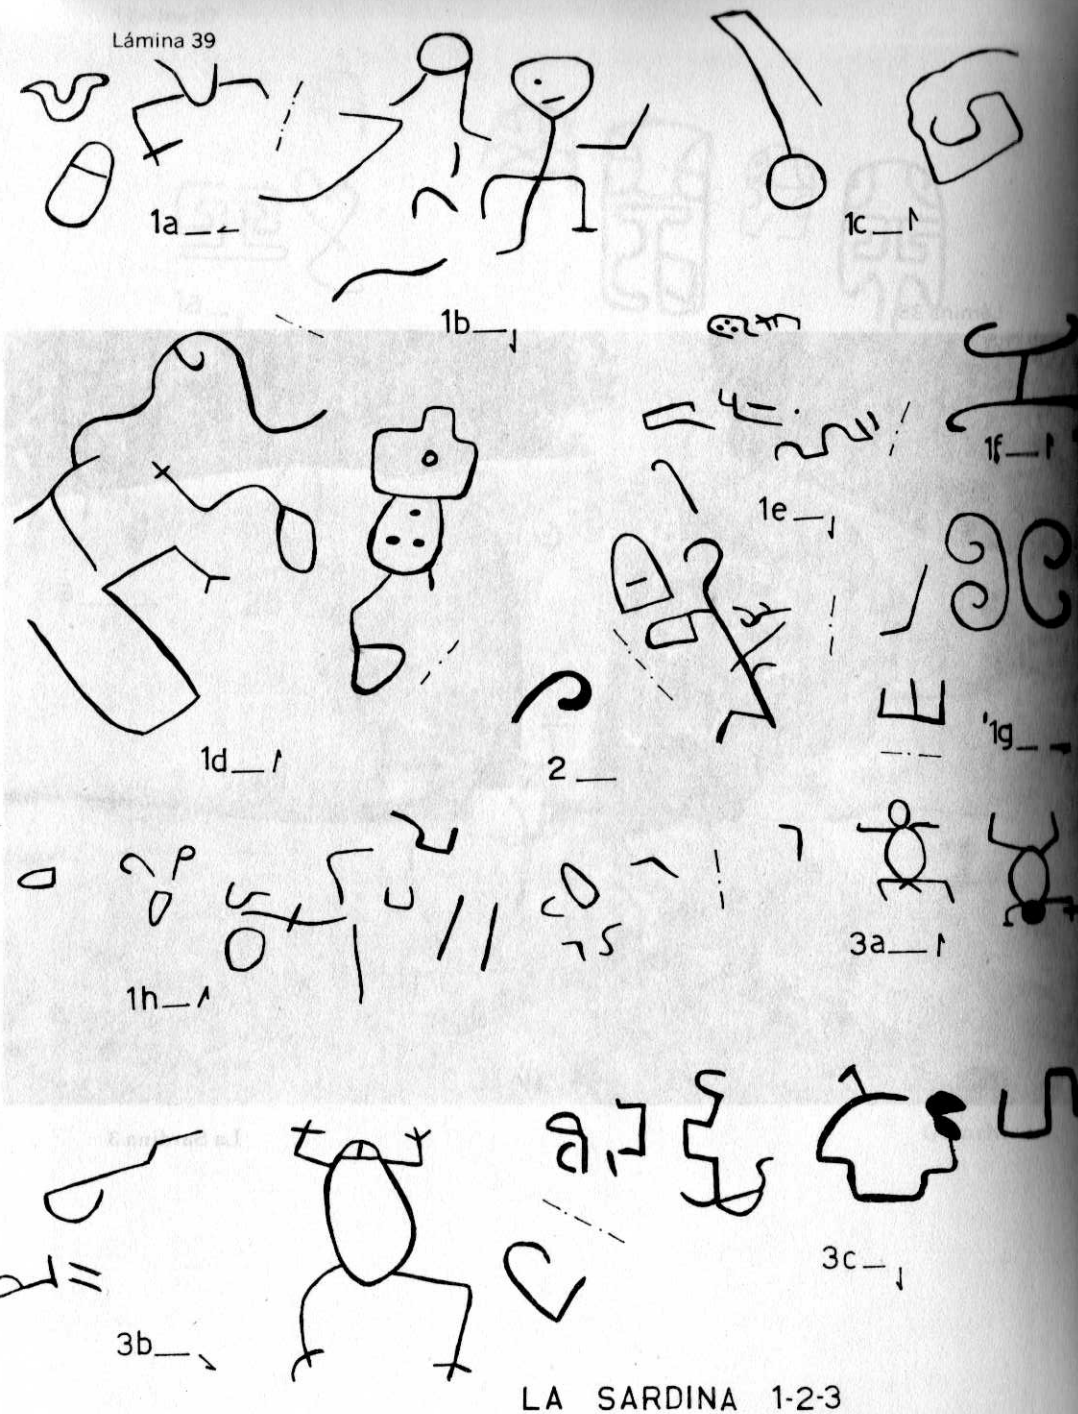 Lámina 39
1a
1b
1c
1d
1e
1f
1g
1h
2
3a
3b
3c
LA SARDINA 1-2-3